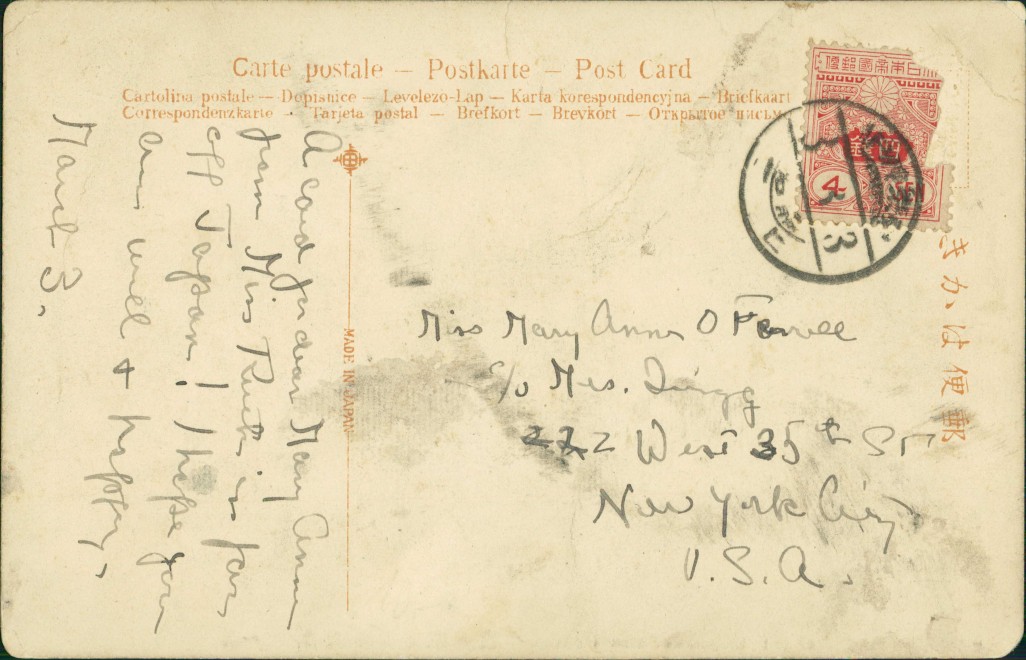 Carte postale — Postkarte — Post Card
Cartolina postale — Dopisnice — Levelező-Lap — Karta korespondencyjna — Briefkaart
Correspondenzkarte · Tarjeta postal — Brefkort — Brevkort — Открытое письм
大日本帝國郵便
四銭
4 SEN
3
3
郵便はかき
MADE IN JAPAN
A card for dear Mary Anne
from Miss Ruth in far
off Japan! I hope you
are well & happy.
March 3.
Miss Mary Anne O Farrell
c/o Mrs.
222 West 35th St
New York City
U.S.A.